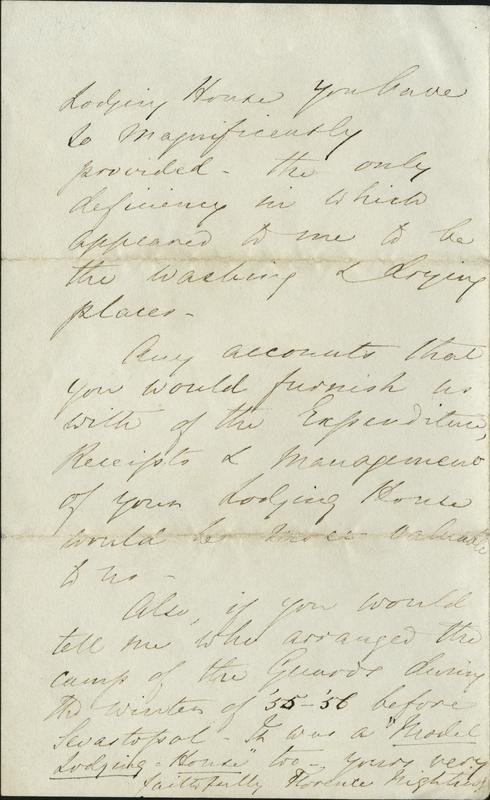 Lodging House you have
so magnificently
provided - the only
deficiency in which
appeared to me to be
the washing & drying
places -
Any accounts that
you would furnish us
with of the Expenditure,
Receipts & Management
of your Lodging House
would be most valuable
to us -
Also, if you would
tell me who arranged the
camp of the Guards during
the winter of '55-'56 before
Sevastopol - It was a "Model
Lodging-House" too - yours very
faithfully Florence Nightingale